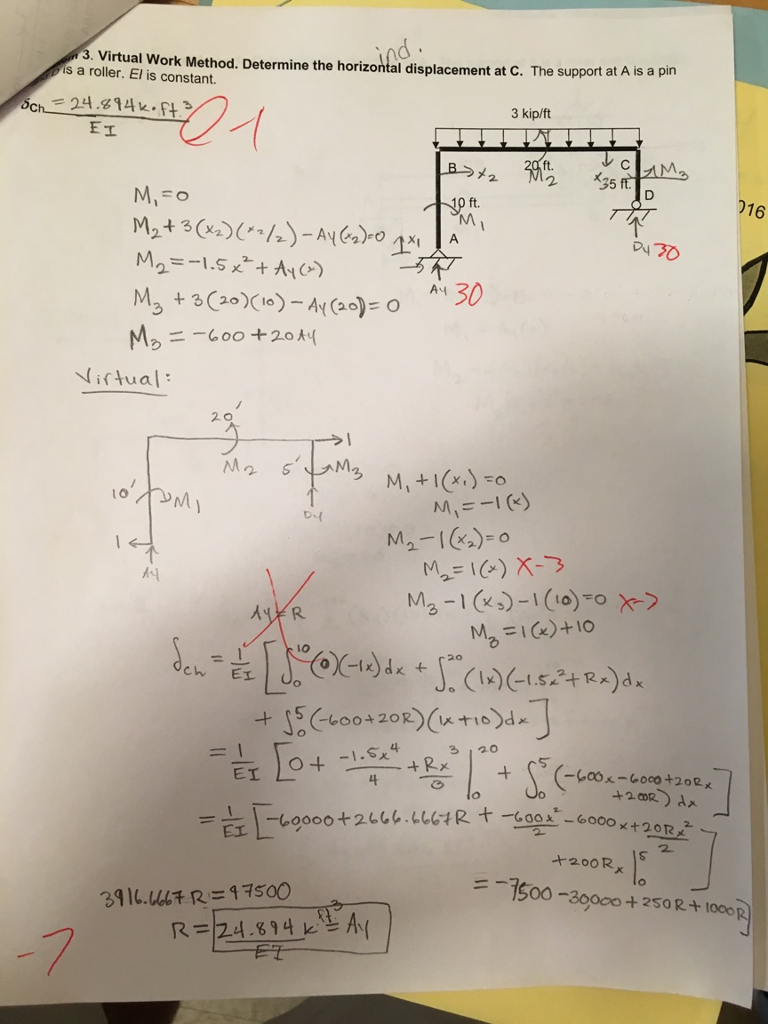 ind.
3. Virtual Work Method. Determine the horizontal displacement at C. The support at A is a pin
is a roller. EI is constant.
δCh = 24.894 k·ft³
EI
3 kip/ft
B → x2
20 ft.
M2
C
M3
x3 5 ft.
D
10 ft.
M1
x1
A
Ay 30
Dy 30
016
M1 = 0
M2 + 3(x2)(x2/2) - Ay(x2) = 0
M2 = -1.5x² + Ay(x)
M3 + 3(20)(10) - Ay(20) = 0
M3 = -600 + 20Ay
Virtual:
20'
1
M2
5'
M3
10'
M1
Dy
1
Ay
M1 + 1(x1) = 0
M1 = -1(x)
M2 - 1(x2) = 0
M2 = 1(x) X-3
M3 - 1(x3) - 1(10) = 0 X-7
M3 = 1(x) + 10
Ay = R
δch = 1/EI [∫₀¹⁰ (0)(-1x)dx + ∫₀²⁰ (1x)(-1.5x² + Rx)dx
+ ∫₀⁵ (-600+20R)(1x+10)dx]
= 1/EI [0 + -1.5x⁴/4 + Rx³/3 |₀²⁰ + ∫₀⁵ (-600x-6000+20Rx
+200R) dx]
= 1/EI [-60,000 + 2666.6667R + -600x²/2 - 6000x + 20Rx²/2
+200Rx |₀⁵]
= -7500 - 30,000 + 250R + 1000R]
3916.6667R = 97500
R = 24.894 k ft³/EI = Ay
-7